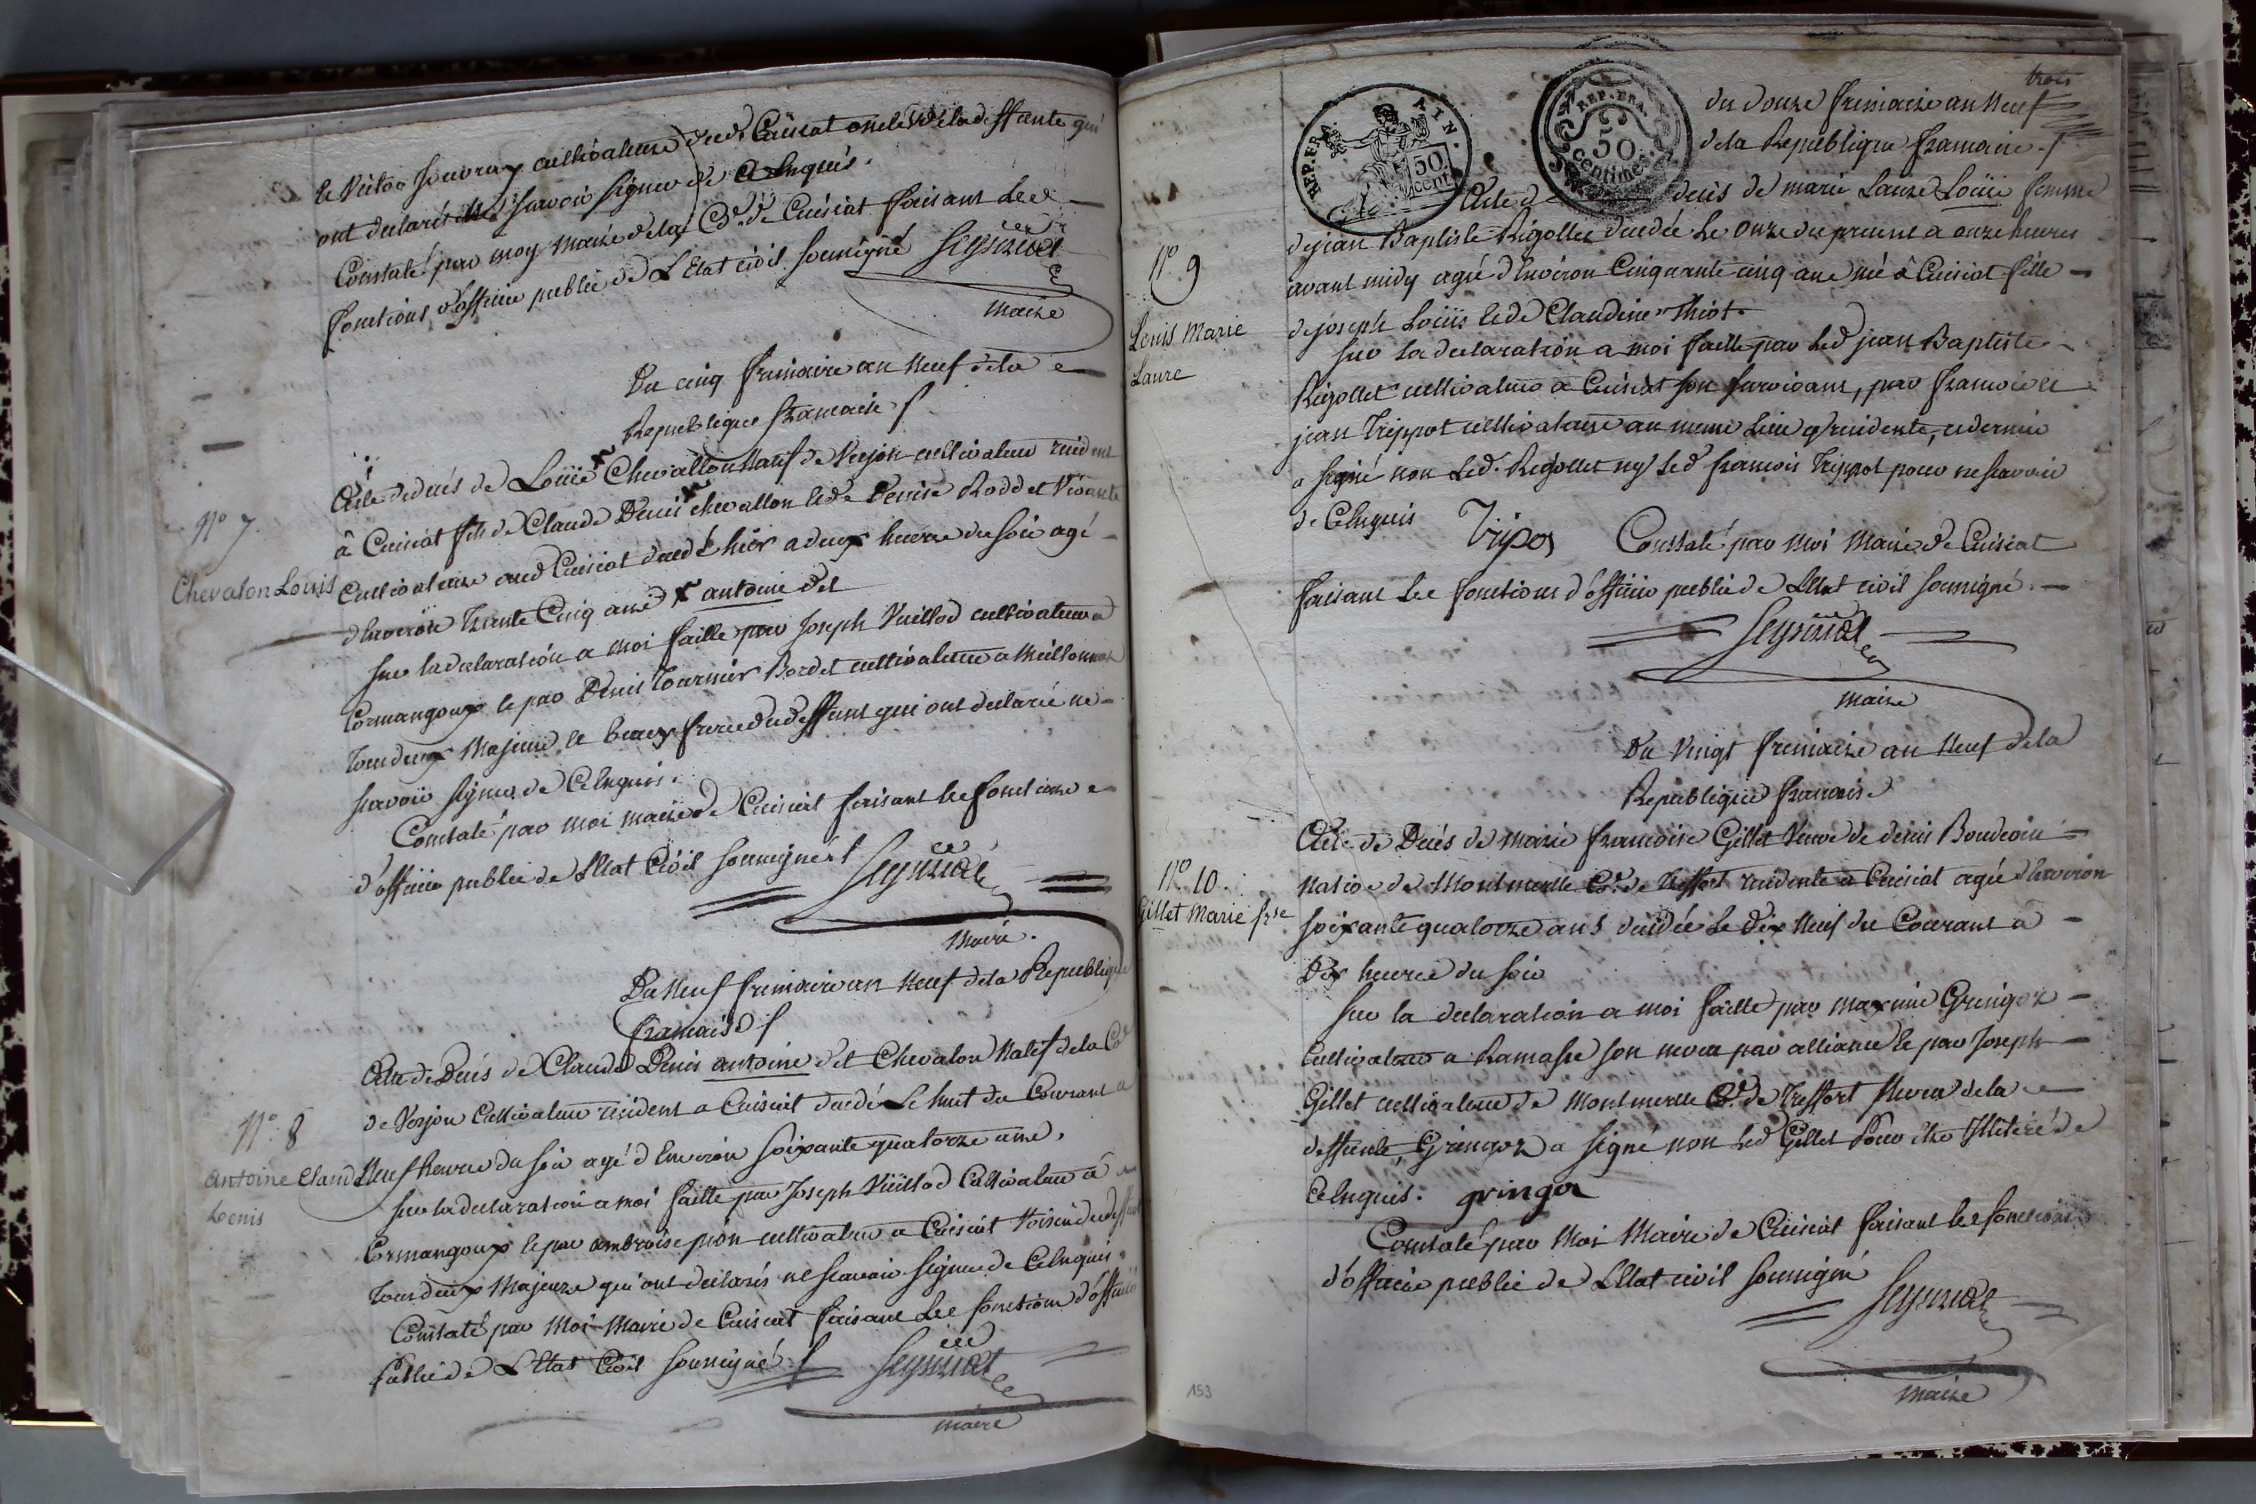 le Victor Souvray cultivateurs dud. Cuisiat oncles de la deffunte qui
ont declarés ne sçavoir signer de ce Enquis.
Constaté par moy maire de la Ce. de Cuisiat faisant les
fonctions d'officier public de L'Etat civil soussigné Seyssuel
maire
Du cinq frimaire an neuf de la
Republique francaise
N° 7
Chevalon Louis
Acte de decés de Loüis Chevallon natif de Verjon cultivateur resident
à Cuisiat fils de Claude Denis chevallon et de Denise Roddet vivants
cultivateurs aud Cuisiat decedé hier a deux heures du soir agé
d'Environ Trente Cinq ans x antoine dit
sur la declaration a moi faitte par Joseph Vuillod cultivateur a
Cormangoux et par Denis Tournier Bordet cultivateur a Meillonnas
tous deux Majeurs et beaux freres du deffunt qui ont declaré ne
scavoir signer de Ce Enquis.
Constaté par moi maire de Cuisiat faisant les fonctions
d'officier public de L'Etat Civil soussigné Seyssuel
Maire.
Du Neuf frimaire an Neuf de la Republique
francaise
N° 8
Antoine Claude
Denis
Acte de Decés de Claude Denis antoine dit Chevalon Natif de la Ce
de Verjon Cultivateur resident a Cuisiat decedé Le huit du Courant a
Neuf heures du soir agé d'Environ soixante quatorze ans.
sur la declaration a moi faitte par Joseph Vuillod Cultivateur à
Cormangoux et par ambroise pion cultivateur a Cuisiat voisin du deffunt
tous deux Majeurs qui ont declarés ne scavoir signer de Ce Enquis.
Constaté par Moi Maire de Cuisiat faisant les fonctions d'officier
public de L'Etat Civil soussigné Seyssuel
maire
trois
REP. FRA.
AIN.
50 cent
REP. FRA.
50
centimes
du douze frimaire an Neuf
de la Republique francaise.
N° 9
Louis Marie
Laure
Acte de decés de marie Laure Loüis femme
de jean Baptiste Rigollet decedée Le onze du present a onze heures
avant midy agée d'Environ Cinquante cinq ans née à Cuisiat fille
de joseph Loüis et de Claudine Thiot.
sur la declaration a moi faitte par Led jean Baptiste
Rigollet cultivateur a Cuisiat son survivant, par francois et
jean Trippot cultivateurs au meme Lieu y residents, ce dernier
a signé non Led. Rigollet ny Led francois Trippot pour ne scavoir
de Ce Enquis Tripoz Constaté par Moi Maire de Cuisiat
faisant Les fonctions d'officier public de L'Etat civil soussigné.
Seyssuel
maire
Du Vingt frimaire an Neuf de la
Republique francaise
N° 10.
Gillet Marie frse
Acte de Decés de marie francoise Gillet Veuve de denis Boudoin
Native de Montmerle Ce. de Treffort residente a Cuisiat agée d'Environ
soixante quatorze ans decedée Le dix Neuf du Courant a
Dix heures du soir
sur la declaration a moi faitte par maxime Gringoz
Cultivateur a Ramasse son neveu par alliance et par Joseph
Gillet cultivateur de Montmerle Ce. de Treffort Neveu de la
deffunte, Gringoz a signé non Led Gillet pour etre Illiteré de
Ce Enquis. gringoz
Constaté par Moi Maire de Cuisiat faisant les fonctions
d'officier public de L'Etat civil soussigné Seyssuel
maire
153